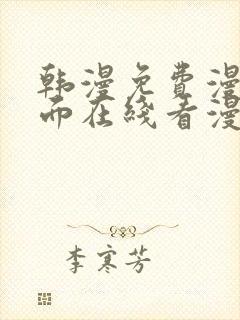 韩漫免费漫
而在线看漫
李寒芳